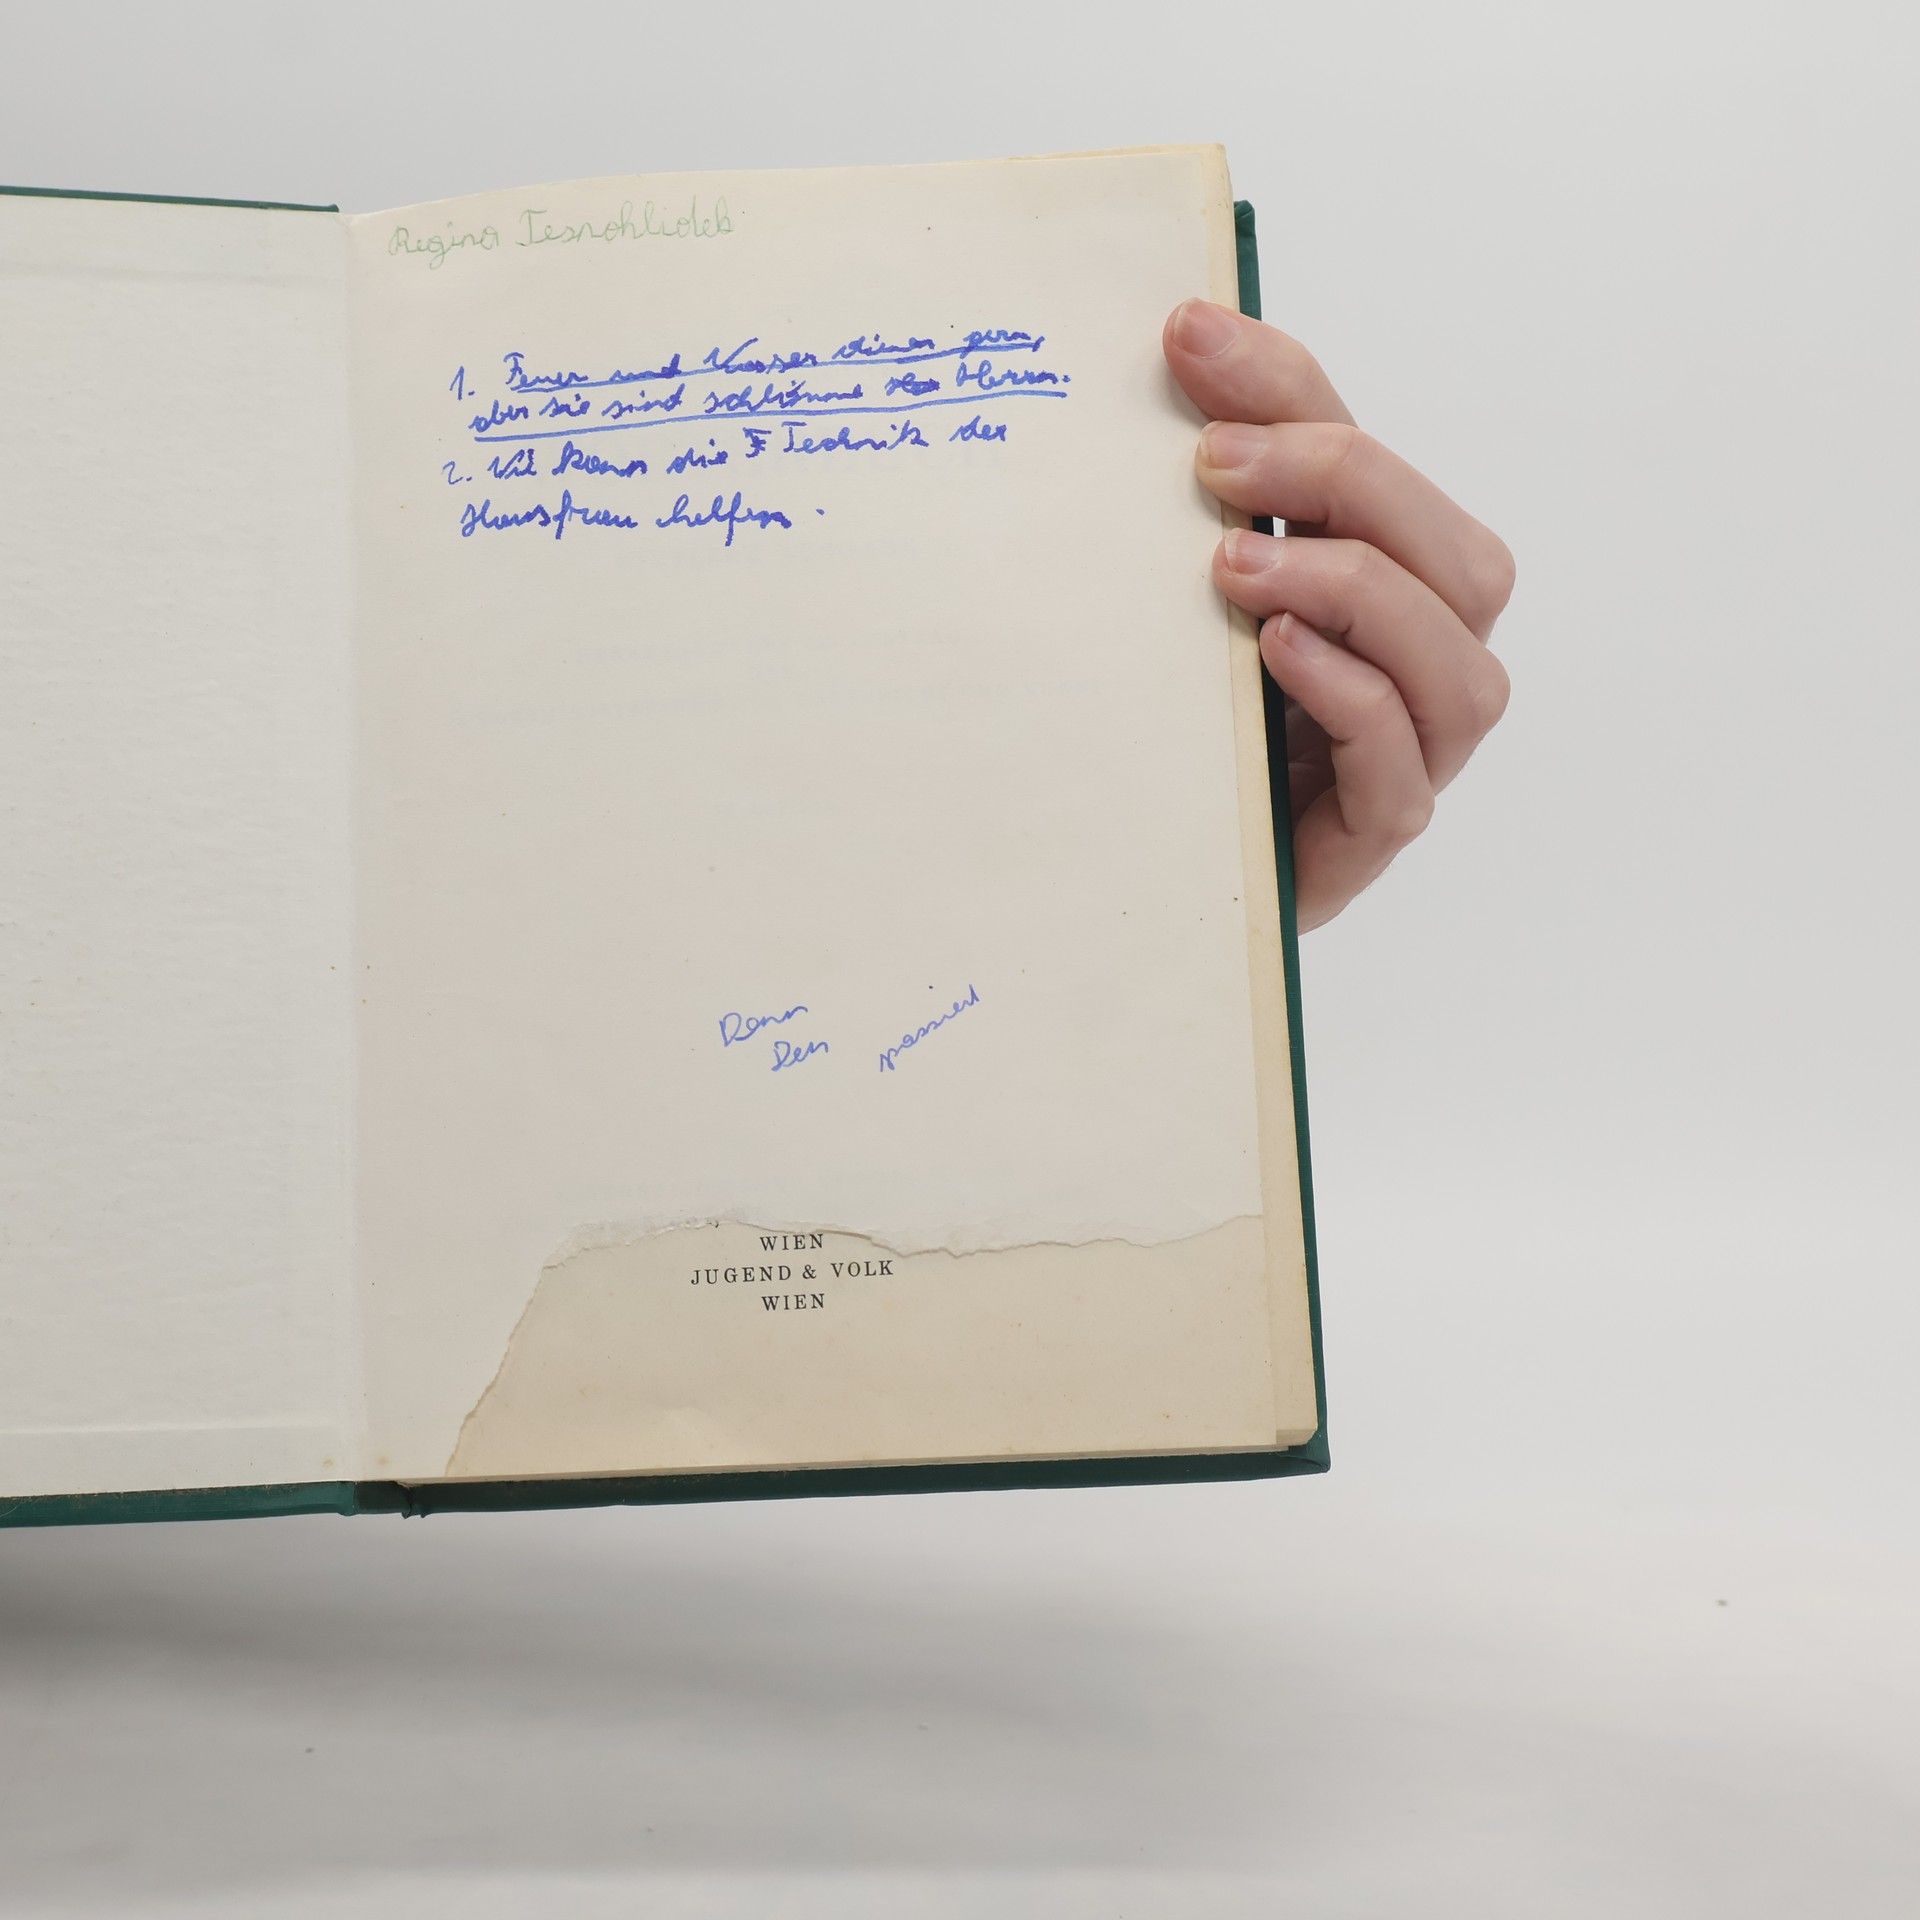 Regina Tesnohlidek
1. Feuer und Wasser dienen gern,
aber sie sind schlimme Herrn.
2. Wie kann die F Technik der
Hausfrau helfen.
Denn
Den passiert
WIEN
JUGEND & VOLK
WIEN